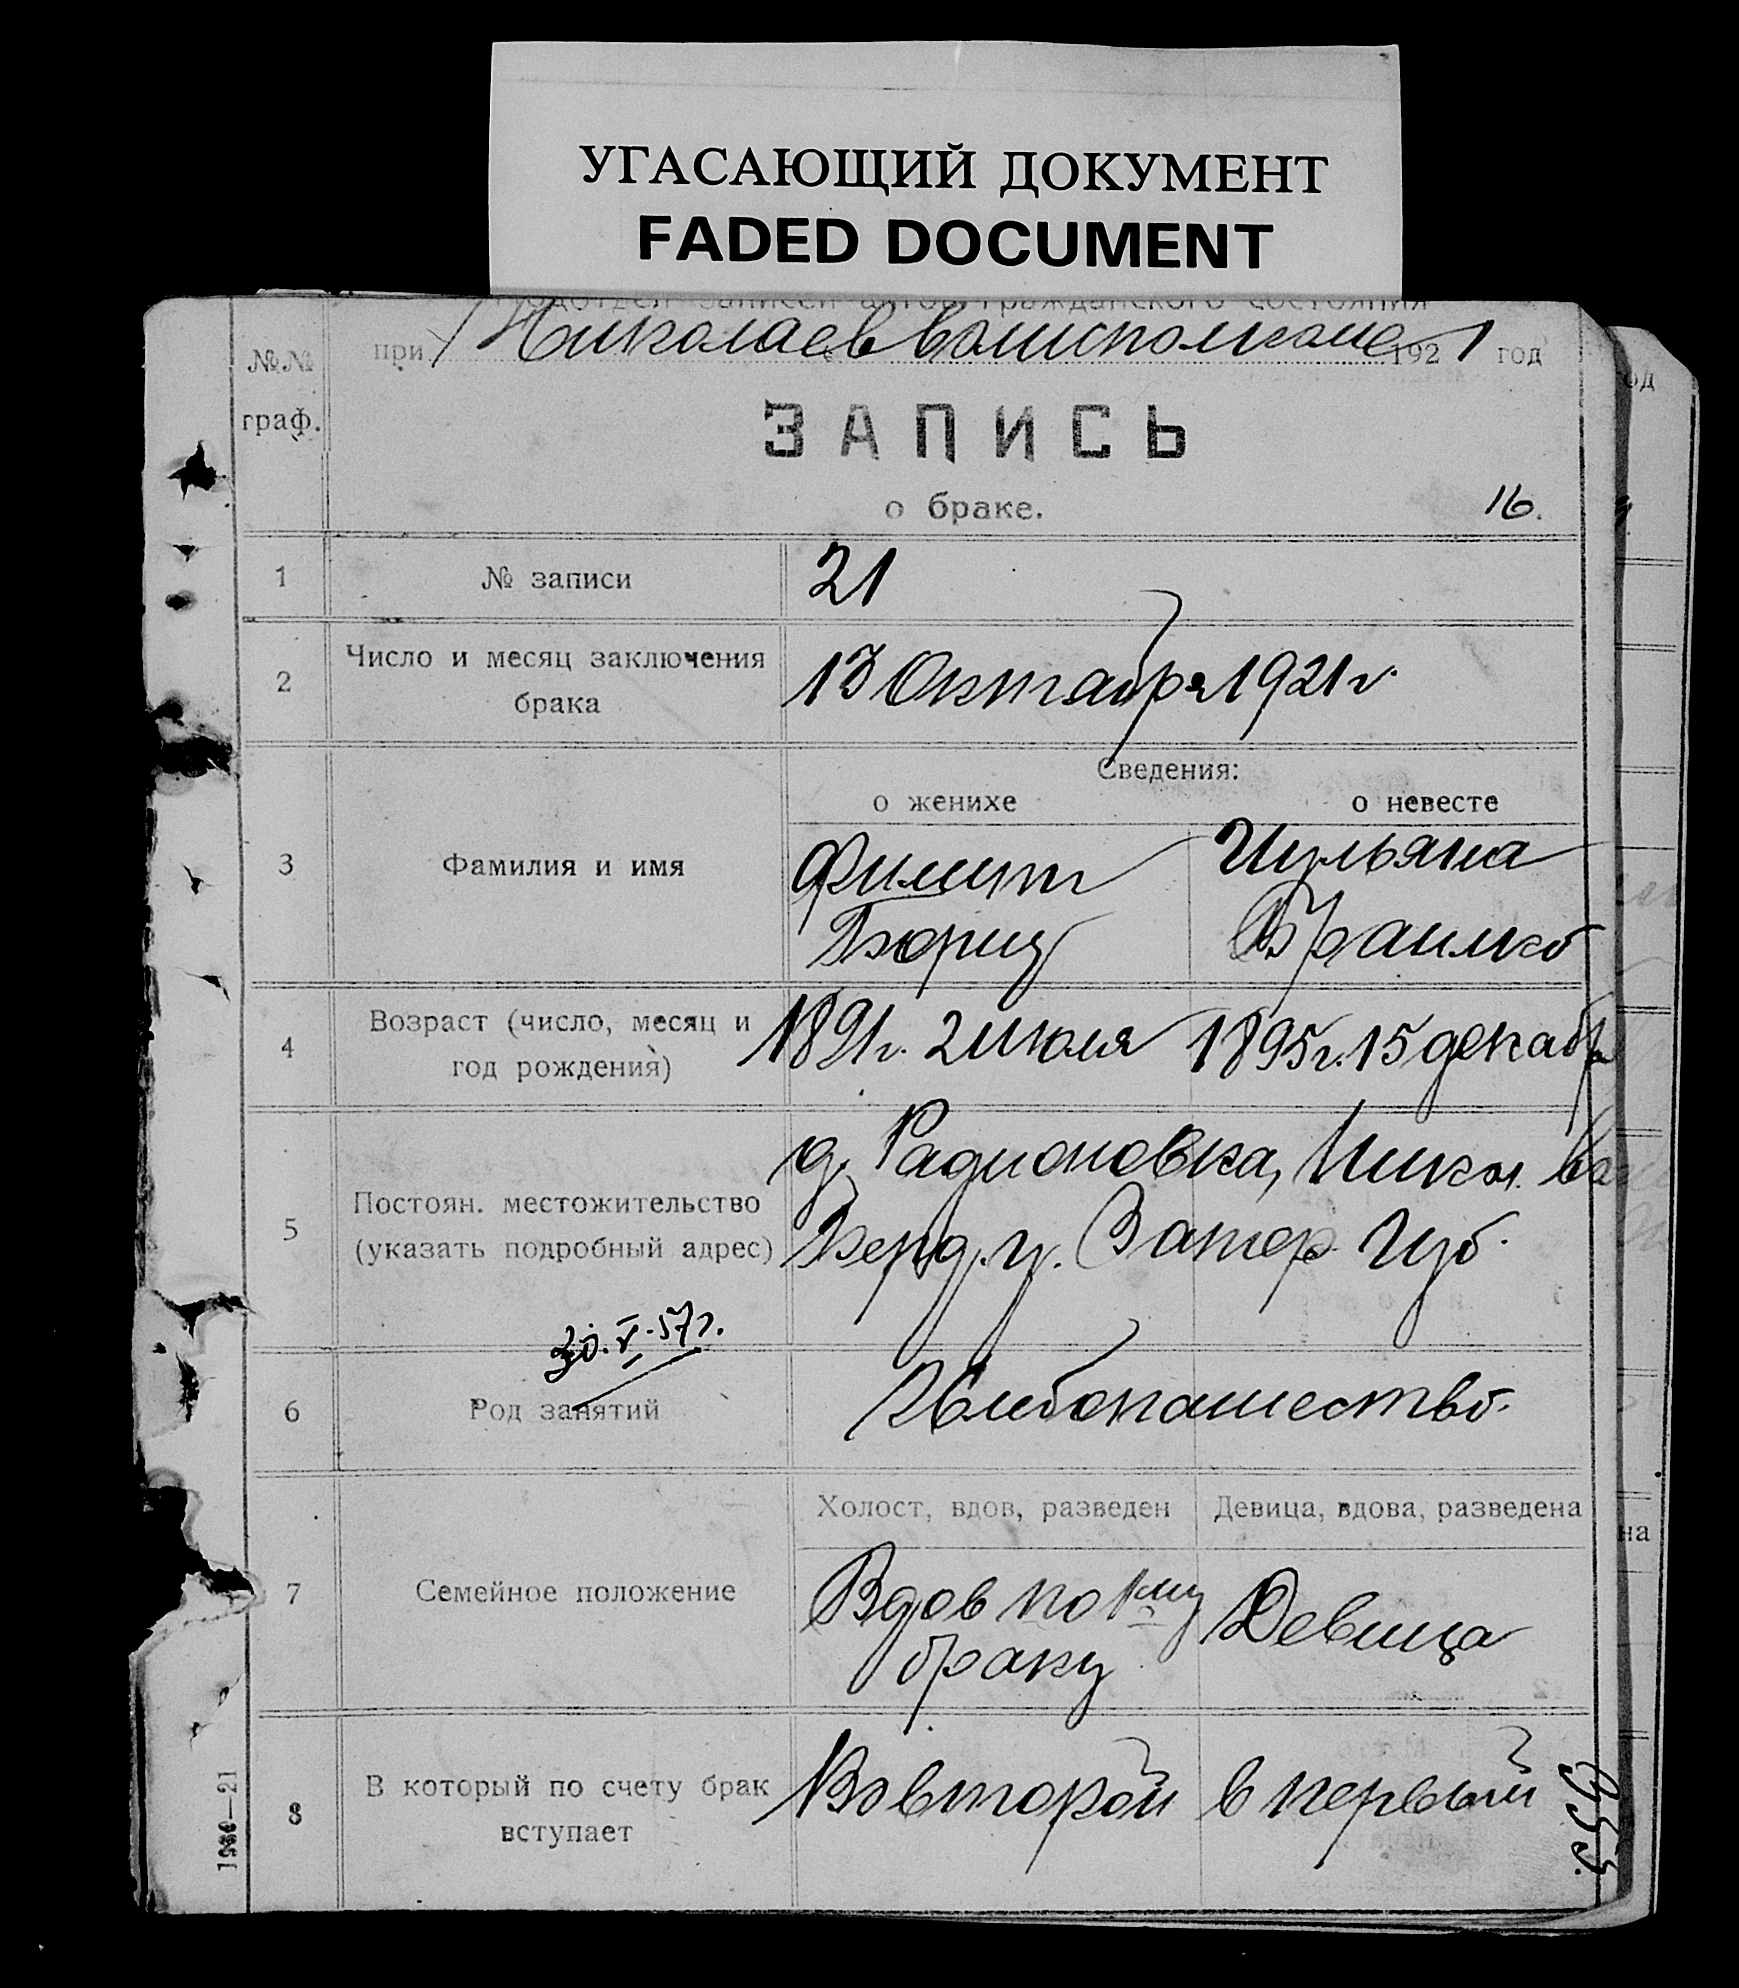 УГАСАЮЩИЙ ДОКУМЕНТ
FADED DOCUMENT
подотдел записей актов гражданского состояния
№№ граф.
при Николаев волисполкоме 1921 год
ЗАПИСЬ
о браке.
16.
1 № записи 21
2 Число и месяц заключения брака 13 Октября 1921 г.
Сведения:
о женихе о невесте
3 Фамилия и имя
Филипп Юльяна
Бориц Браилко
4 Возраст (число, месяц и год рождения) 1891 г. 2 июля 1895 г. 15 декабр
5 Постоян. местожительство (указать подробный адрес)
д. Радионовка, Никол. Вол
Берд. у. Запор. Губ.
30.V.57г.
6 Род занятий Хлебопашество.
Холост, вдов, разведен Девица, вдова, разведена
7 Семейное положение
Вдов по 1му Девица
браку
8 В который по счету брак вступает Во второй в первый